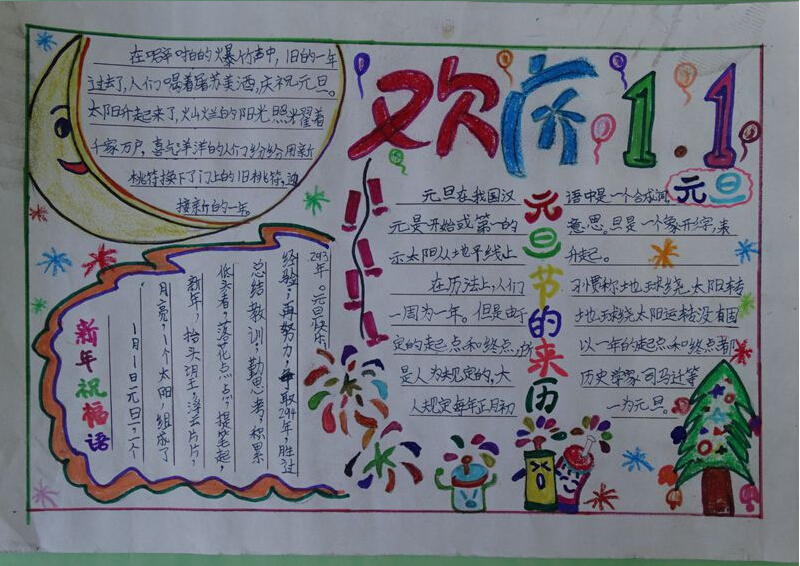 欢庆1.1
元旦
在噼啪啪的爆竹声中，旧的一年
过去了，人们喝着屠苏美酒，庆祝元旦。
太阳升起来了，灿烂的阳光照耀着
千家万户，喜气洋洋的人们纷纷用新
桃符换下了门上的旧桃符，迎
接新的一年。
元旦节的来历
元旦在我国汉语中是一个合成词
元是开始或第一的意思。旦是一个象形字，表
示太阳从地平线上升起。
在历法上，人们习惯称地球绕太阳转
一周为一年。但是由地球绕太阳运转没有固
定的起点和终点，所以一年的起点和终点都
是人为规定的，大历史学家司马迁等
人规定每年正月初一为元旦。
新年祝福语
1月1日元旦，一个
月亮，1个太阳，组成了
新年，抬头望，浮云片片，
低头看，落花点点，提笔起，
总结教训，勤思考，积累
经验，再努力，争取294年，胜过
293年。元旦快乐